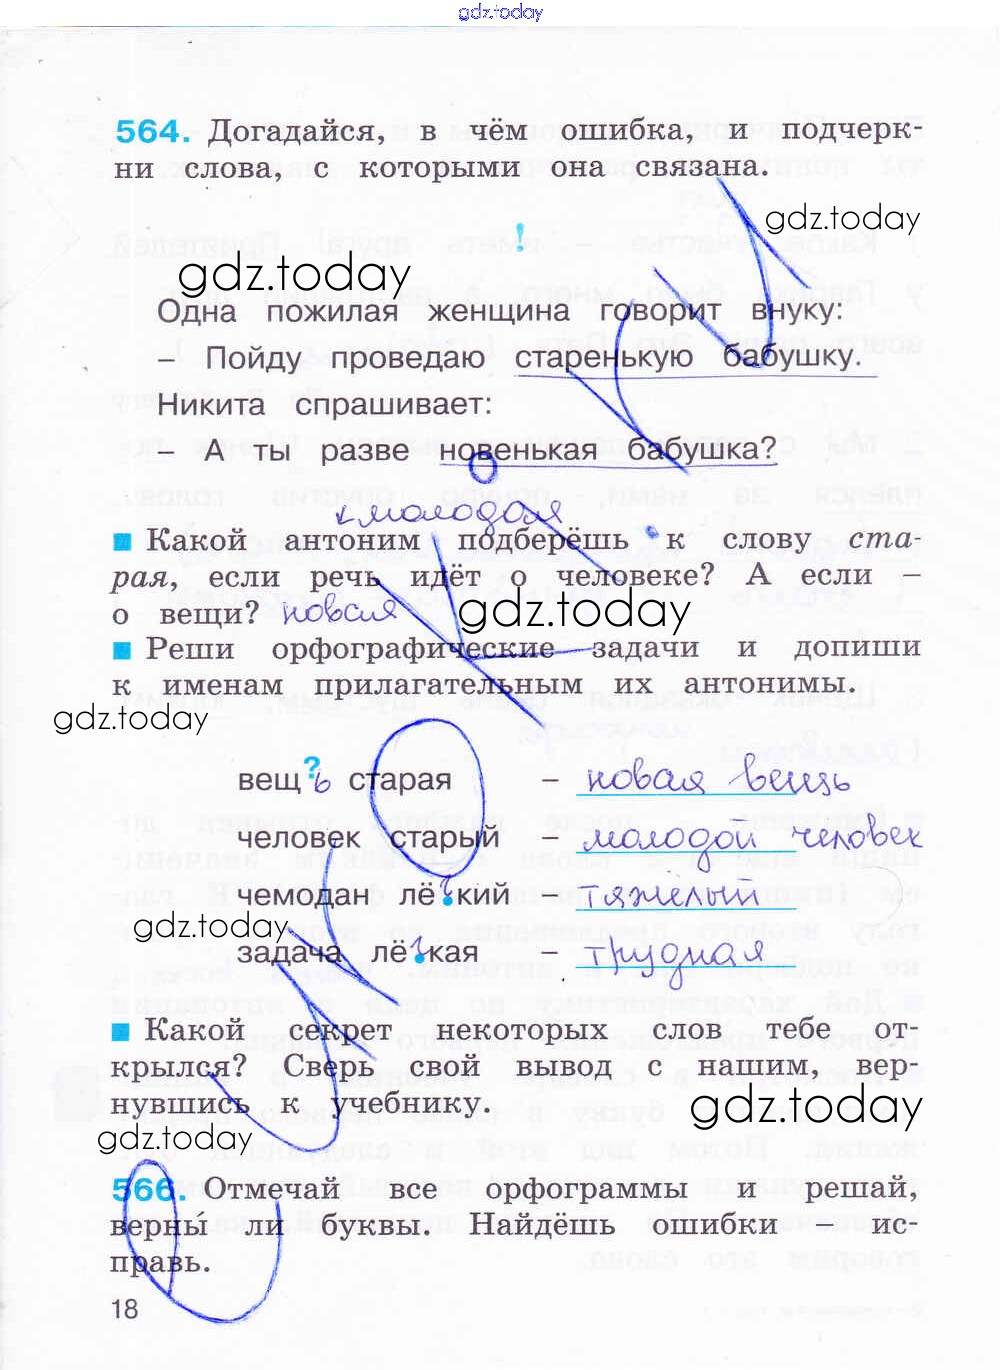 gdz.today
564. Догадайся, в чём ошибка, и подчерк-
ни слова, с которыми она связана.
gdz.today
!
gdz.today
Одна пожилая женщина говорит внуку:
– Пойду проведаю старенькую бабушку.
Никита спрашивает:
– А ты разве новенькая бабушка?
молодой
Какой антоним подберёшь к слову ста-
рая, если речь идёт о человеке? А если –
о вещи? новая gdz.today
Реши орфографические задачи и допиши
к именам прилагательным их антонимы.
gdz.today
вещ?ь старая – новая вещь
человек старый – молодой человек
чемодан лё?кий – тяжёлый
gdz.today
задача лё?кая – трудная
Какой секрет некоторых слов тебе от-
крылся? Сверь свой вывод с нашим, вер-
нувшись к учебнику.
gdz.today
gdz.today
566. Отмечай все орфограммы и решай,
верны́ ли буквы. Найдёшь ошибки – ис-
правь.
18